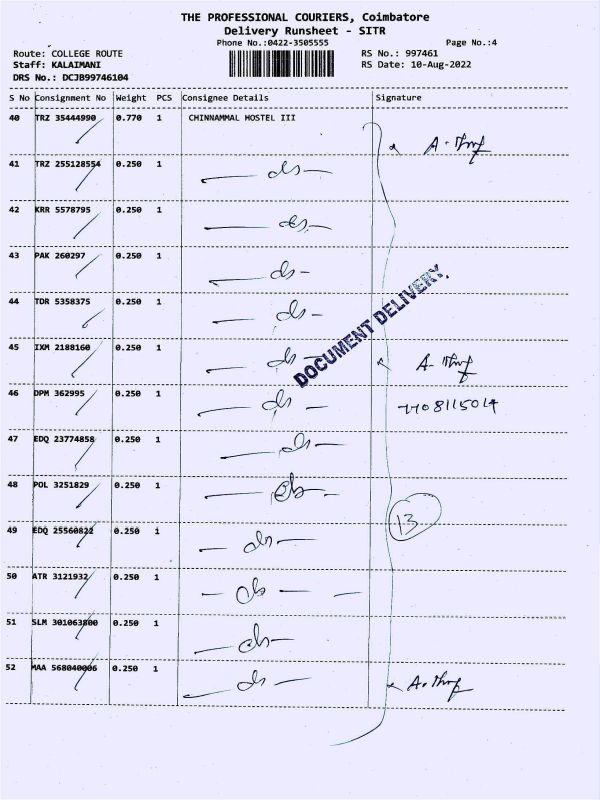 THE PROFESSIONAL COURIERS, Coimbatore
Delivery Runsheet - SITR
Phone No.:0422-3505555 Page No.:4
Route: COLLEGE ROUTE RS No.: 997461
Staff: KALAIMANI RS Date: 10-Aug-2022
DRS No.: DCJB99746104
S No Consignment No Weight PCS Consignee Details Signature
40 TRZ 35444990 0.770 1 CHINNAMMAL HOSTEL III
41 TRZ 255128554 0.250 1
42 KRR 5578795 0.250 1
43 PAK 260297 0.250 1
44 TDR 5358375 0.250 1
DOCUMENT DELIVERY.
45 IXM 2188160 0.250 1
46 DPM 362995 0.250 1 7708115014
47 EDQ 23774858 0.250 1
48 POL 3251829 0.250 1
13
49 EDQ 25560822 0.250 1
50 ATR 3121932 0.250 1
51 SLM 301063800 0.250 1
52 MAA 568040006 0.250 1